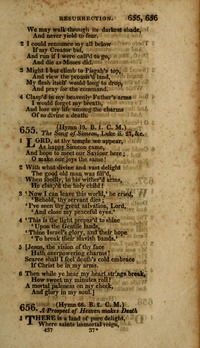 RESURRECTION. 655, 656
We may walk through its darkest shade,
And never yield to fear.
2 I could renounce my all below
If my Creator bid,
And run if I were call'd to go,
And die as Moses did.
3 Might I but climb to Pisgah's top,
And view the promis'd land,
My flesh itself would long to drop,
And pray for the command.
4 Clasp'd in my heavenly Father's arms
I would forget my breath,
And lose my life among the charms
Of so divine a death.
655. (Hymn 19. B. 1. C. M.)
The Song of Simeon, Luke ii. 27, &c.
1 LORD, at thy temple we appear,
As happy Simeon came,
And hope to meet our Saviour here;
O make our joys the same!
2 With what divine and vast delight
The good old man was fill'd,
When fondly, in his wither'd arms,
He clasp'd the holy child!
3 'Now I can leave this world,' he cried,
'Behold, thy servant dies;
'I've seen thy great salvation, Lord,
'And close my peaceful eyes.
4 'This is the light prepar'd to shine
'Upon the Gentile lands,
'Thine Israel's glory, and their hope
'To break their slavish bands.'
5 [Jesus, the vision of thy face
Hath overpowering charms!
Scarce shall I feel death's cold embrace
If Christ be in my arms.
6 Then while ye hear my heart strings break,
How sweet my minutes roll!
A mortal paleness on my cheek,
And glory in my soul.]
656. (Hymn 66. B. 2. C. M.)
A Prospect of Heaven makes Death
1 THERE is a land of pure delight,
Where saints immortal reign,
437 37*